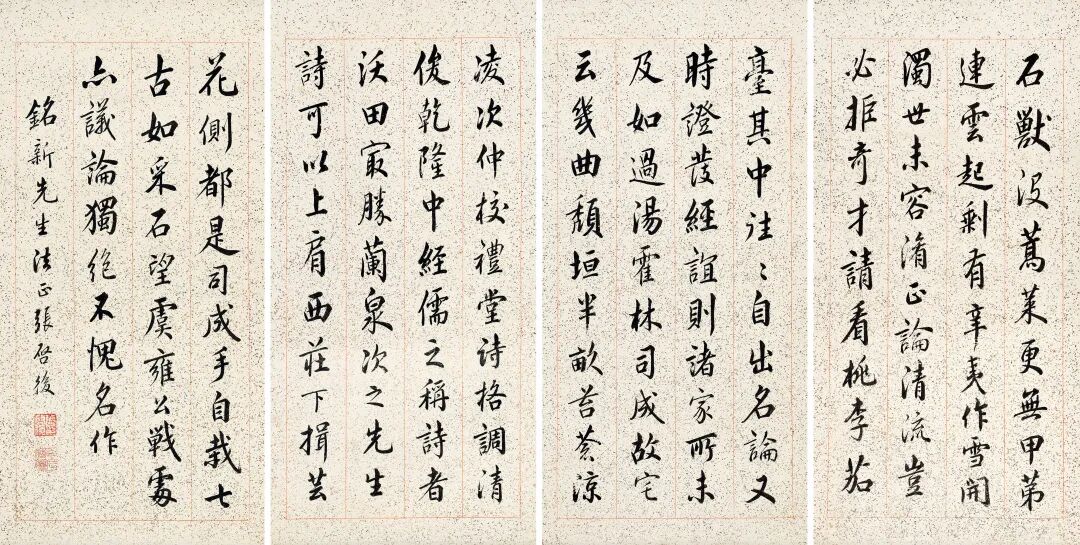 凌次仲校禮堂詩格調清
俊乾隆中經儒之稱詩者
沃田冣勝蘭泉次之先生
詩可以上肩西莊下揖芸
臺其中往〻自出名論又
時證發經誼則諸家所未
及如過湯霍林司成故宅
云幾曲頹垣半畝苔荒涼
石獸沒蒿萊更無甲第
連雲起剩有辛夷作雪開
濁世未容淆正論清流豈
必拒奇才請看桃李茄
花側都是司成手自栽七
古如采石望虞雍公戰處
亦議論獨絕不愧名作
銘新先生法正張啓後